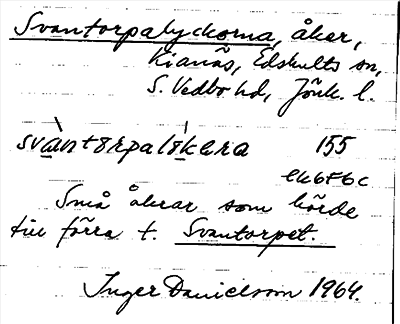 Svantorpalyckorna, åker,
Kianäs, Edshults sn,
S. Vedbo hd, Jönk. l.
155
ek6F6c
Små åkrar som hörde
till förra t. Svantorpet.
Inger Danielsson 1964.